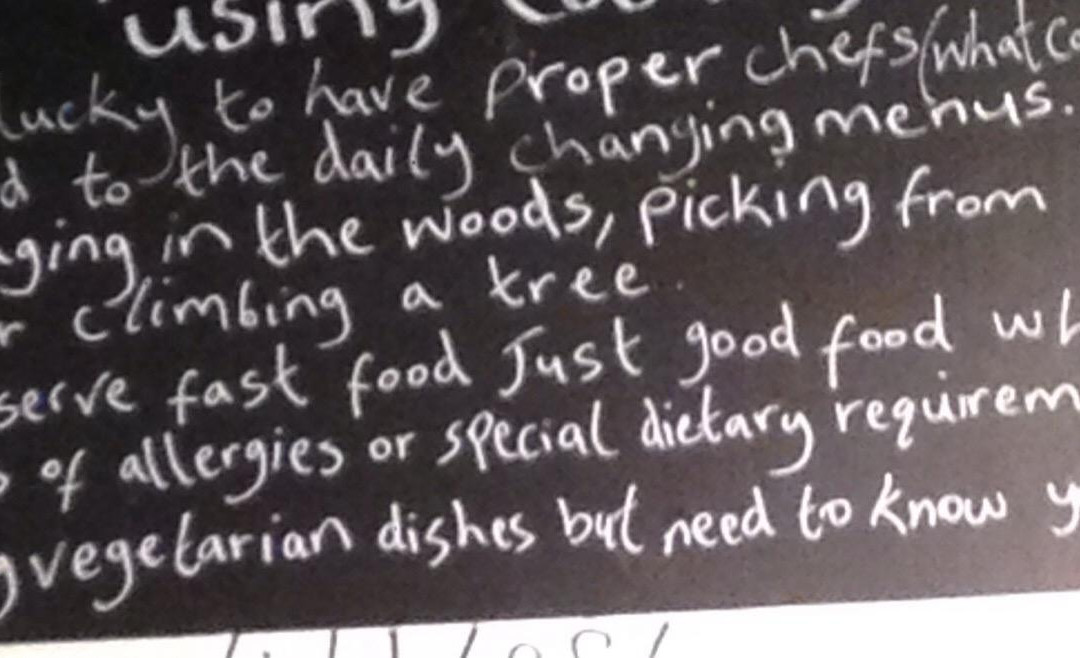 using
lucky to have proper chefs (what
to the daily changing menus.
in the woods, picking from
climbing a tree.
serve fast food Just good food
of allergies or special dietary
vegetarian dishes but need to know